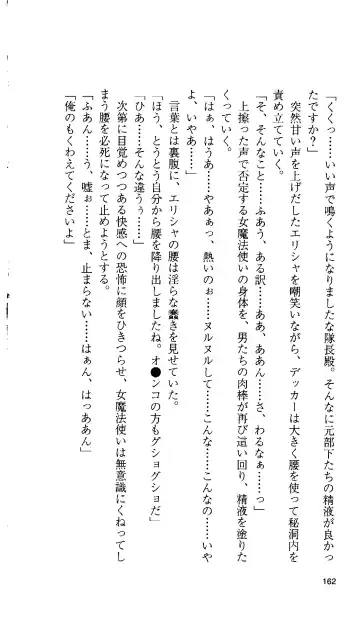 「くくっ……いい声で鳴くようになりましたな隊長殿。そんなに元部下たちの精液が良かっ
たですか？」
突然甘い声を上げだしたエリシャを嘲笑いながら、デッカーは大きく腰を使って秘洞内を
責め立てていく。
「そ、そんなこと……ふあう、ある訳……ああ、ああん……さ、わるなぁ……っ」
上擦った声で否定する女魔法使いの身体を、男たちの肉棒が再び這い回り、精液を塗りた
くっていく。
「はぁ、はうあ……やあぁっ、熱いのぉ……ヌルヌルして……こんな……こんなの……いや
よ、いやあ……」
言葉とは裏腹に、エリシャの腰は淫らな蠢きを見せていた。
「ほう、とうとう自分から腰を降り出しましたね。オ●ンコの方もグショグショだ」
「ひあ……そんな違うぅ……」
次第に目覚めつつある快感への恐怖に顔をひきつらせ、女魔法使いは無意識にくねってし
まう腰を必死になって止めようとする。
「ふあん……う、嘘ぉ……と、止まらない……はぁん、はっああん」
「俺のもくわえてくださいよ」
162